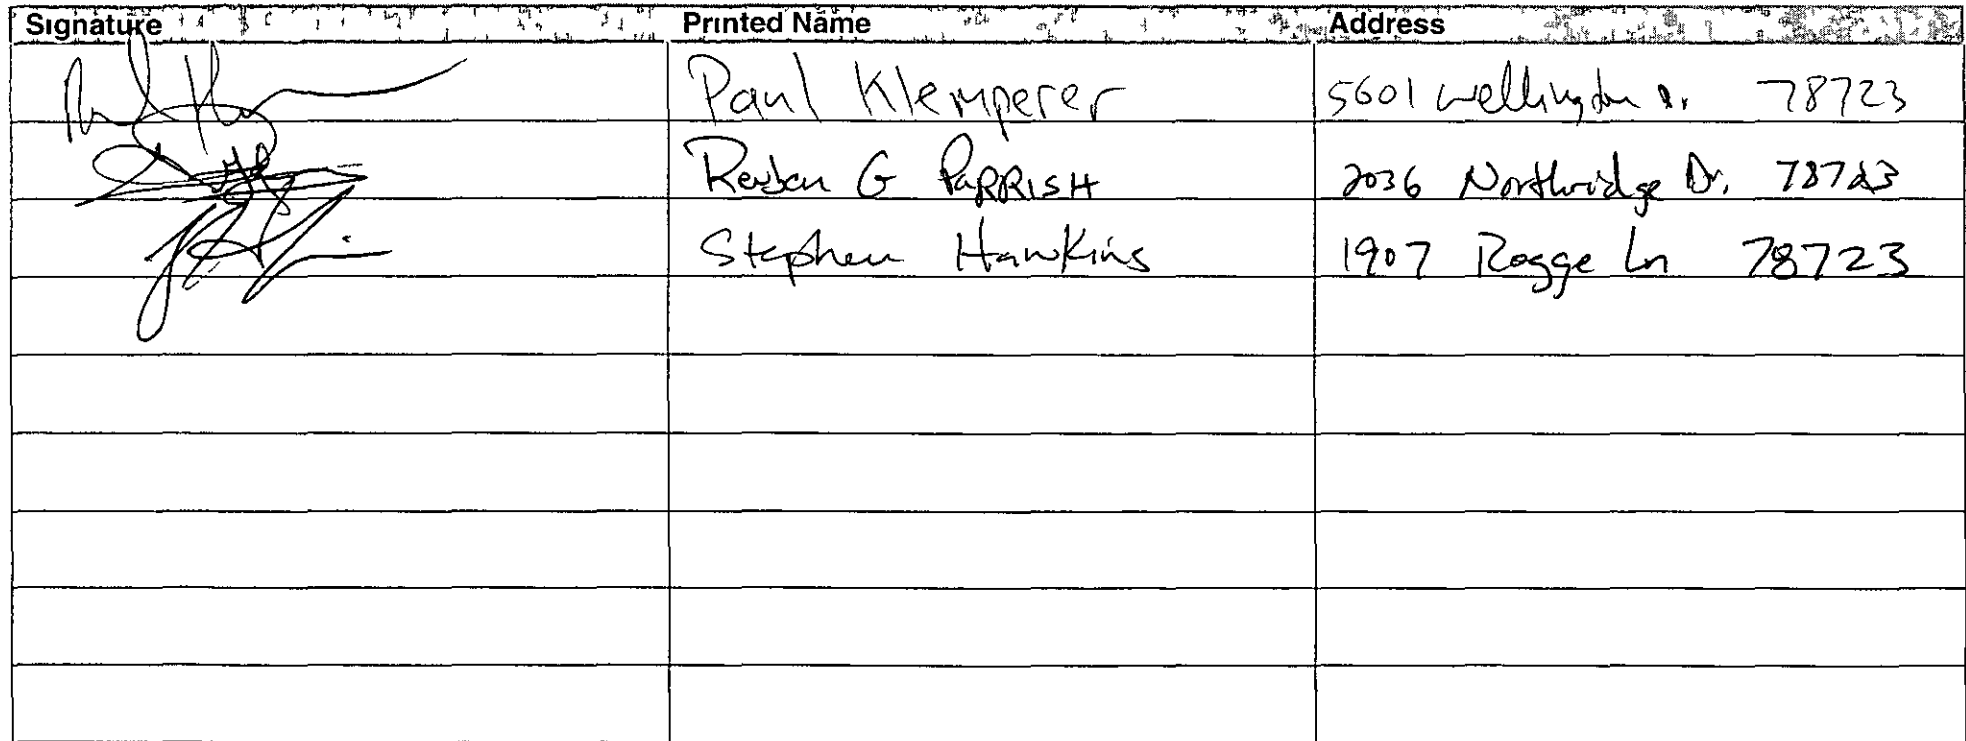 Signature Printed Name Address
Paul Klemperer 5601 Wellington Dr. 78723
Reuben G PARRISH 2036 Northridge Dr. 78723
Stephen Hawkins 1907 Rogge Ln 78723